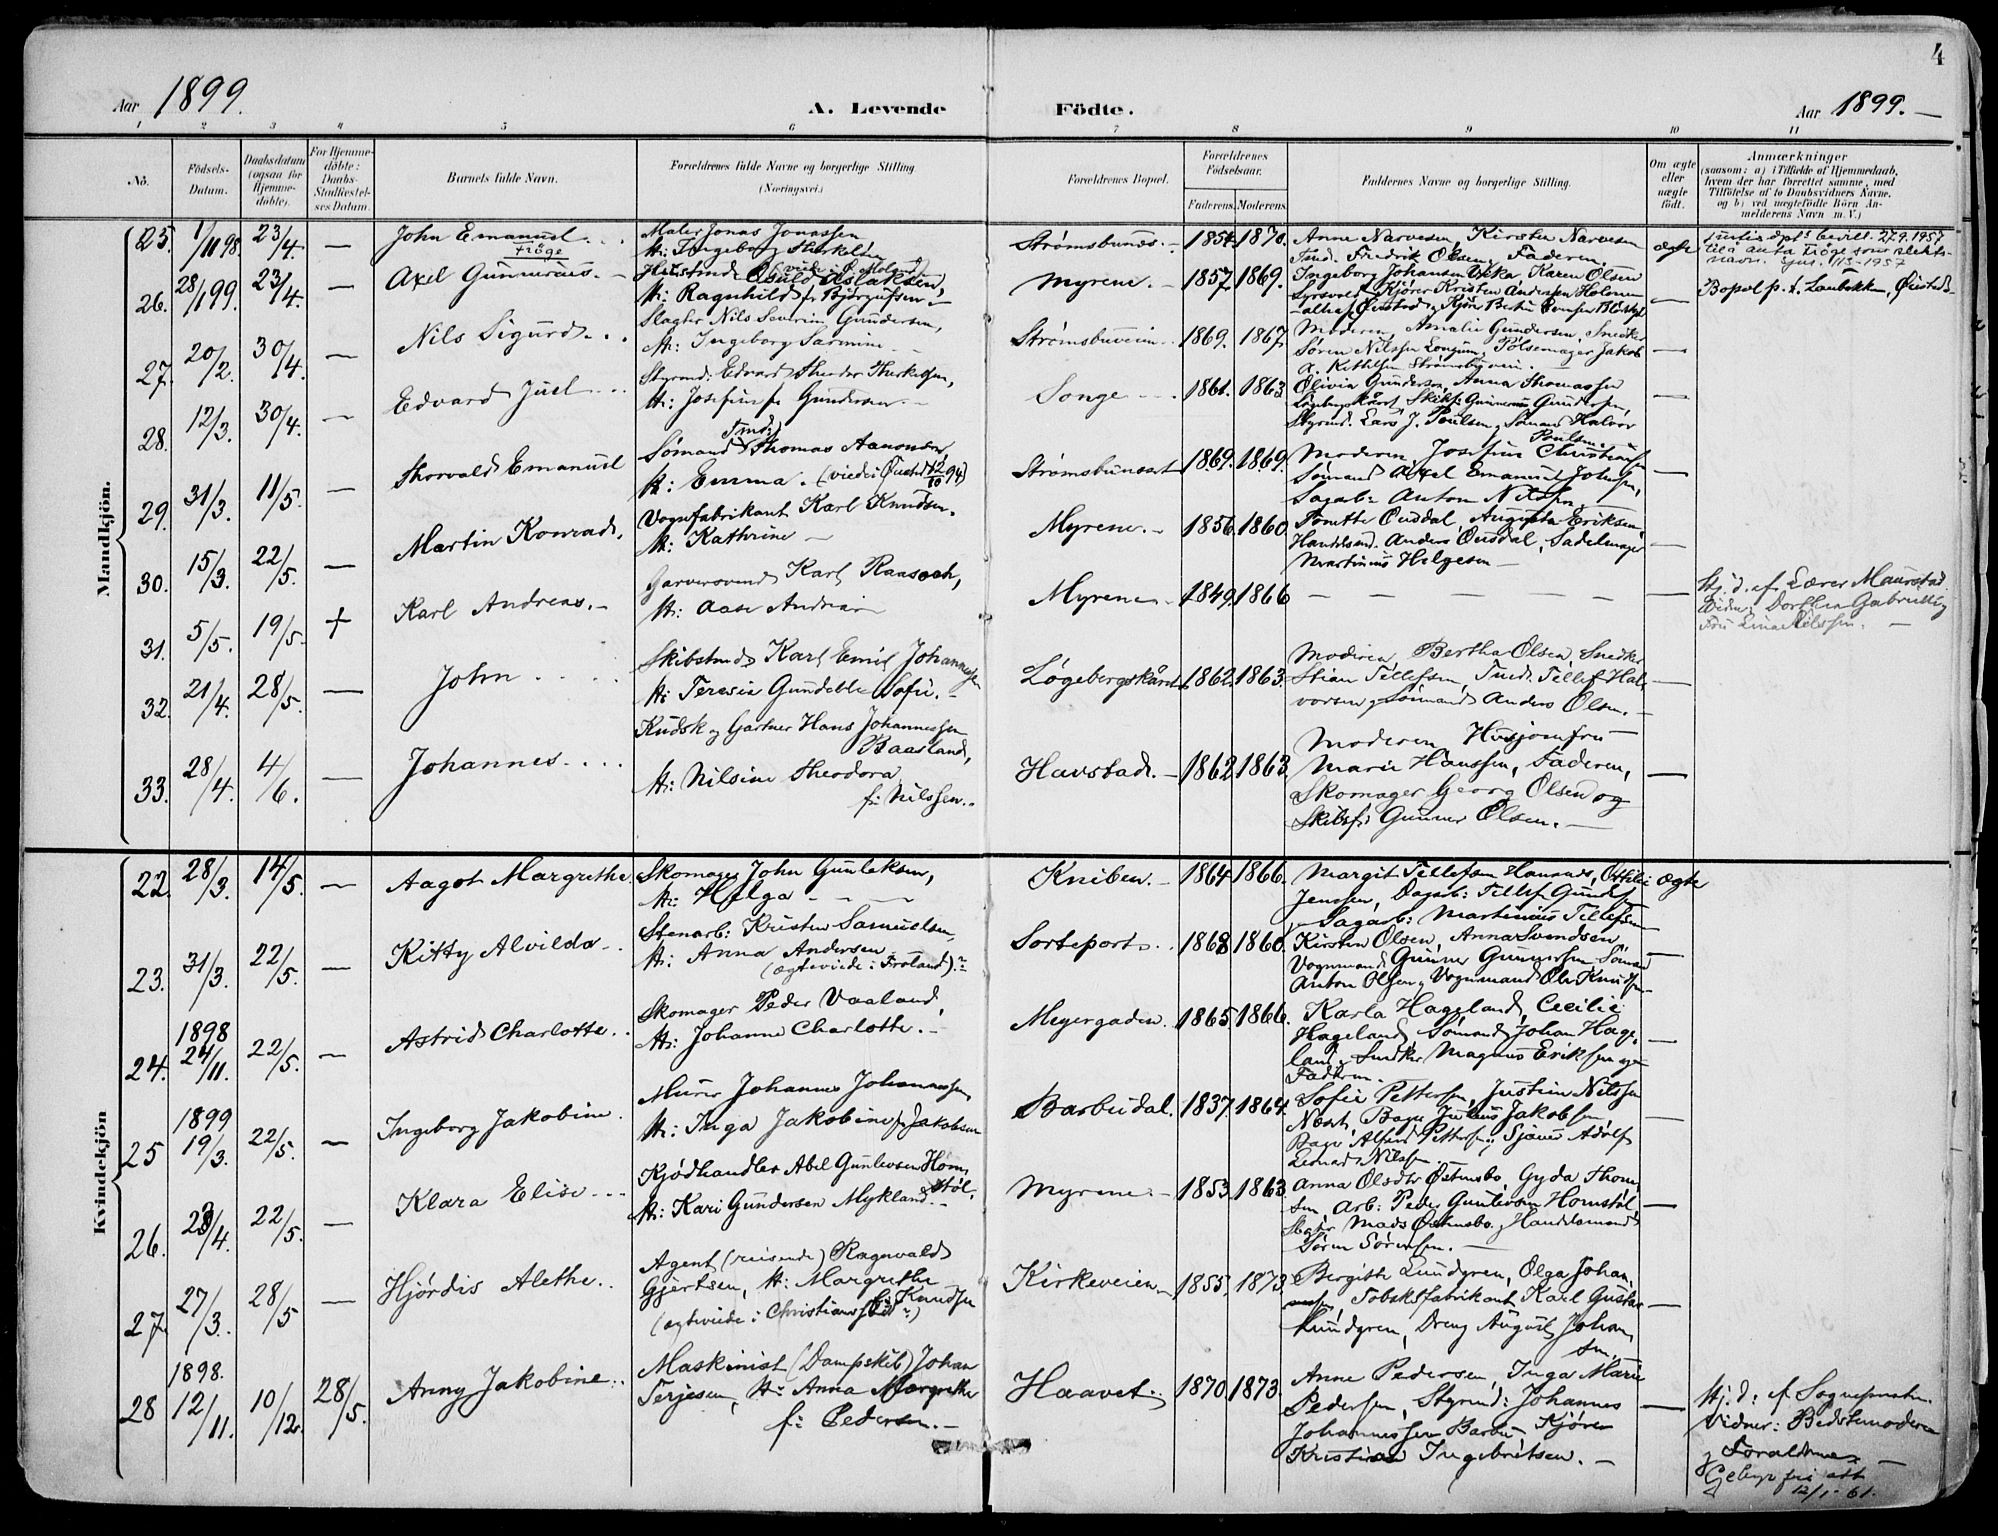 4
Aar 1899.
A. Levende Födte.
Aar 1899.
1 2 3 4 5 6 7 8 9 10 11
No.
Födsels-Datum.
Daabsdatum (ogsaa for Hjemme-döbte).
For Hjemme-döbte: Daabs-Stadfæstelses Datum.
Barnets fulde Navn.
Forældrenes fulde Navne og borgerlige Stilling (Næringsvei.)
Forældrenes Bopæl.
Forældrenes Födselsaar.
Faderens. Moderens.
Faddernes Navne og borgerlige Stilling.
Om ægte eller uægte födt.
Anmærkninger
(saasom: a) i Tilfælde af Hjemmedaab, hvem der har forrettet samme, med Tilföielse af to Daabsvidners Navne. og b) ved uægtefödte Börn Anmelderens Navn m. V.)
Mandkjön.
25. 1/11 98. 23/4. — John Emanuel
Frøge
Maler Jonas Jonassen
H: Ingeborg Therkelsen
Strømsbunes. 1854. 1870.
Anne Narvesen, Kirsten Narvesen
Tmd. Fredrik Olsen, Faderen.
ægte
bevill. 27.9.1957
26. 28/1 99. 23/4. — Axel Gunnerius.
H: Ragnhild f. Björgufsen.
Myrene. 1857. 1869.
Ingeborg Johansen Karen Olsen
—
Bopæl p. t. Løubekken, Øiestad
27. 20/2. 30/4. — Nils Sigurd
Slagter Nils Severin Gundersen,
H: Ingeborg Sarmine
Strømsbuveien. 1869. 1867.
Moderen, Amalie Gundersen, Snedker
Søren Nilssen Longum, Pølsemager Jakob
A. Kittelsen Strømsbuveien.
—
28. 12/3. 30/4. — Edvard Juel
Styrmd: Edvard Theodor Therkelsen,
H: Josefine f. Gundersen.
Songe 1861. 1863
Olivia Gundersen, Anna Thomassen
Styrmd. Lars J. Poulsen, Sømand Halvor
Poulsen.
—
29. 31/3. 11/5. — Thorvald Emanuel
Tmd:
Sømand Thomas Aanonsen,
H: Emma. (viede i Øiestad 12/10 94)
Strømsbuneset 1869. 1869.
Moderen, Josefine Christiansen
Sømand Axel Emanuel Johnsen,
Sagarb: Anton Nilsen
—
30. 15/3. 22/5. — Martin Konrad.
Vognfabrikant Karl Knudsen.
H: Kathrine —
Myrene. 1856. 1860.
Tomette Ousdal, Augusta Eriksen
Handelsmd. Anders Ousdal, Sadelmager
Martinius Helgesen —
—
31. 5/5. 19/5. + Karl Andreas.
Garversvend Karl Raasoch,
H: Aase Andrea
Myrene 1849. 1866
— — — — — — —
Hj. d. af Lærer Maurstad.
Vidner: Dorthea Gabrielsen
Fru Lina Nilssen. —
32. 21/4. 28/5. — John
Skibstmd Karl Emil Johannessen
H: Teresie Gundelle Sofie.
Løgebergskåret 1862. 1863.
Moderen, Bertha Olsen, Snedker
Stian Tellefsen, Tmd. Tellef Hal-
vorsen, Sømand Anders Olsen.
—
33. 28/4. 4/6. — Johannes
Kudsk og Gartner Hans Johannessen
Baasland,
H: Nilsine Theodora
f: Nilssen.
Havstad. 1862. 1863.
Moderen, Husjomfru
Marie Hanssen, Faderen,
Skomager Georg Olsen og
Skibsf: Gunner Olsen. —
—
Kvindekjön
22. 28/3. 14/5. — Aagot Margrethe.
Skomager John Gunleksen,
H: Helga
Kniben. 1864. 1866.
Margit Tellefsen Hansnæs, Ottilie
Jensen, Dagarb: Tellef Gunders
Sagarb: Martinius Tellefsen
ægte
23. 31/3. 22/5. — Kitty Alvilda
Stenarb: Kristen Samuelsen,
H: Anna Andersen
(ægteviede i Froland).
Sorteport. 1868 1860.
Kirsten Olsen, Anna Svendsen,
Vognmand Gunner Gunnersen Sømand
Anton Olsen, Vognmand Ole Knudsen
—
24. 1898 24/11. 22/5. — Astrid Charlotte.
Skomager Peder Vaaland,
H: Johanne Charlotte.
Meyergaden. 1865. 1866.
Karla Hageland, Cecilie
Hageland, Sømand Johan Hage-
land, Snedker Magnus Eriksen og
Faderen.
—
25 1899 19/3. 22/5. — Ingeborg Jakobine.
Murer Johannes Johannessen
H: Inga Jakobine f. Jakobsen
Barbudal. 1837. 1864.
Sofie Pettersen, Justine Nilssen
Næset, Bager Julius Jakobsen
Bager Alfred Pettersen, Sjømd Adolf
Leonard Nilssen.
—
26. 23/4. 22/5. — Klara Elise
Kjødhandler Abel Gunleusen Horn-
støl.
H: Kari Gundersen Mykland.
Myrene 1853. 1863.
Anna Olsdtr Østensbo, Gyda Thom-
sen, Arb: Peder Gunleusen Hornstøl,
Mads Østensbo, Handelsmand
Søren Sørensen. —
—
27. 27/3. 28/5 — Hjördis Alethe.
Agent (reisende) Ragnvald
Gjertsen, H: Margrethe
f: Knudsen
(ægteviede i Christianssand)
Kirkeveien 1855. 1873.
Bergitte Lundgren, Olga Johan-
sen, Tobaksfabrikant Karl Gustav
Lundgren, Dreng August Johan-
sen.
—
28 1898. 12/11. 10/12. 28/5. Anny Jakobine.
Maskinist (Dampskib) Johan
Terjesen, H: Anna Margrethe
f: Pedersen.
Haavet. 1870. 1873.
Anne Pedersen, Inga Marie
Pedersen, Styrmd: Johannes
Johannessen Barbu, Kjører
Kristian Ingebritsen. —
—
Hj. d: af Sognepresten.
Vidner: Bedstemoderen
og Forældrene —
Gebyr fri att
12/1-61.